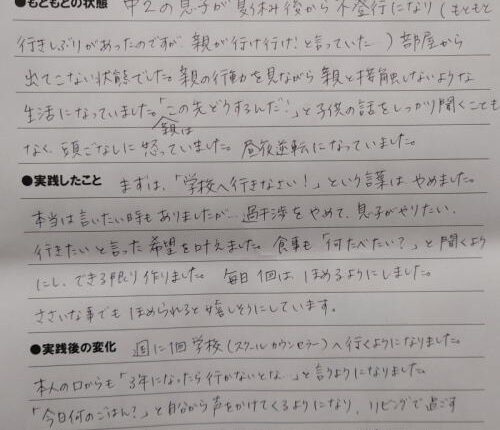 ●もともとの状態 中2の息子が夏休み後から不登校になり(もともと
行きしぶりがあったのですが親が行け行け!と言っていた)部屋から
出てこない状態でした。親の行動を見ながら親と接触しないような
生活になっていました。「この先どうするんだ!」と子供の話をしっかり聞くことも
なく、親は頭ごなしに怒っていました。昼夜逆転になっていました。
●実践したこと まずは、「学校へ行きなさい!」という言葉はやめました。
本当は言いたい時もありましたが…過干渉をやめて、息子がやりたい、
行きたいと言った希望を叶えました。食事も「何たべたい?」と聞くように
にし、できる限り作りました。毎日1回は、ほめるようにしました。
ささいな事でもほめられると嬉しそうにしています。
●実践後の変化 週に1回学校(スクールカウンセラー)へ行くようになりました。
本人の口からも「3年になったら行かないとな…」と言うようになりました。
「今日何のごはん?」と自分から声をかけてくるようになり、リビングで過ごす